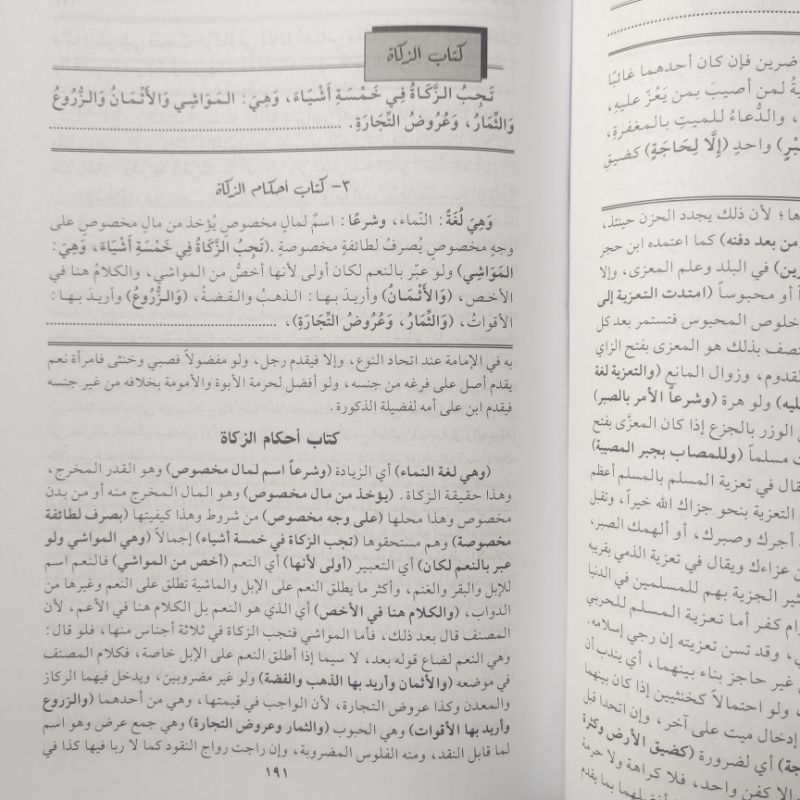 كتاب الزكاة
تَجِبُ الزَّكَاةُ فِي خَمْسَةِ أَشْيَاءَ، وَهِيَ: المَوَاشِي وَالأَثْمَانُ وَالزُّرُوعُ
وَالثِّمَارُ، وَعُرُوضُ التِّجَارَةِ.
٣- كتاب أحكام الزكاة
وَهِيَ لُغَةً: النّماء، وشرعًا: اسمٌ لمال مخصوص يُؤخذ من مالٍ مخصوصٍ على
وجهٍ مخصوصٍ يُصرفُ لطائفةٍ مخصوصةٍ. (تَجِبُ الزَّكَاةُ فِي خَمْسَةِ أَشْيَاءَ، وَهِيَ:
المَوَاشِي) ولو عبّر بالنعم لكان أولى لأنها أخصُّ من المواشي، والكلامُ هنا في
الأخص، (وَالأَثْمَانُ) وأريدَ بها: الذهبُ والفضةُ، (وَالزُّرُوعُ) وأريدَ بها:
الأقواتُ، (وَالثِّمَارُ، وَعُرُوضُ التِّجَارَةِ)،
به في الإمامة عند اتحاد النوع، وإلا فيقدم رجل، ولو مفضولاً فصبي وخنثى فامرأة نعم
يقدم أصل على فرعه من جنسه، ولو أفضل لحرمة الأبوة والأمومة بخلافه من غير جنسه
فيقدم ابن على أمه لفضيلة الذكورة.
كتاب أحكام الزكاة
(وهي لغة النماء) أي الزيادة (وشرعاً اسم لمال مخصوص) وهو القدر المخرج،
وهذا حقيقة الزكاة. (يؤخذ من مال مخصوص) وهو المال المخرج منه أو من بدن
مخصوص وهذا محلها (على وجه مخصوص) من شروط وهذا كيفيتها (يصرف لطائفة
مخصوصة) وهم مستحقوها (تجب الزكاة في خمسة أشياء) إجمالاً (وهي المواشي ولو
عبر بالنعم لكان) أي التعبير (أولى لأنها) أي النعم (أخص من المواشي) فالنعم اسم
للإبل والبقر والغنم، وأكثر ما يطلق النعم على الإبل والماشية تطلق على النعم وغيرها من
الدواب، (والكلام هنا في الأخص) أي الذي هو النعم بل الكلام هنا في الأعم، لأن
المصنف قال بعد ذلك، فأما المواشي فتجب الزكاة في ثلاثة أجناس منها، فلو قال:
وهي النعم لضاع قوله بعد، لا سيما إذا أطلق النعم على الإبل خاصة، فكلام المصنف
في موضعه (والأثمان وأريد بها الذهب والفضة) ولو غير مضروبين، ويدخل فيهما الركاز
والمعدن وكذا عروض التجارة، لأن الواجب في قيمتها، وهي من أحدهما (والزروع
وأريد بها الأقوات) وهي الحبوب (والثمار وعروض التجارة) وهي جمع عرض وهو اسم
لما قابل النقد، ومنه الفلوس المضروبة، وإن راجت رواج النقود كما لا ربا فيها كذا في
١٩١
ضرين فإن كان أحدهما غائبًا
لمن أصيبَ بمن يَعُزّ عليهِ،
، والدُّعاءُ للميتِ بالمغفرةِ،
واحدٍ (إِلَّا لِحَاجَةٍ) كضيقِ
لأن ذلك يجدد الحزن حينئذ،
من بعد دفنه) كما اعتمده ابن حجر
في البلد وعلم المعزى، وإلا
أو محبوساً (امتدت التعزية إلى
خلوص المحبوس فتستمر بعد كل
بذلك هو المعزى بفتح الزاي
القدوم، وزوال المانع (والتعزية لغة
ولو هرة (وشرعاً الأمر بالصبر)
الوزر بالجزع إذا كان المعزَّى بفتح
مسلماً (وللمصاب بجبر المصيبة)
في تعزية المسلم بالمسلم أعظم
التعزية بنحو جزاك الله خيراً، وتقبل
أجرك وصبرك، أو ألهمك الصبر،
عزاءك ويقال في تعزية الذمي بقريبه
الجزية بهم للمسلمين في الدنيا
كفر أما تعزية المسلم للحربي
وقد تسن تعزيته إن رجي إسلامه.
غير حاجز بناء بينهما، أي يندب أن
ولو احتمالاً كخنثيين إذا كان بينهما
إدخال ميت على آخر، وإن اتحدا قبل
أي لضرورة (كضيق الأرض وكثرة
كفن واحد، فلا كراهة ولا حرمة